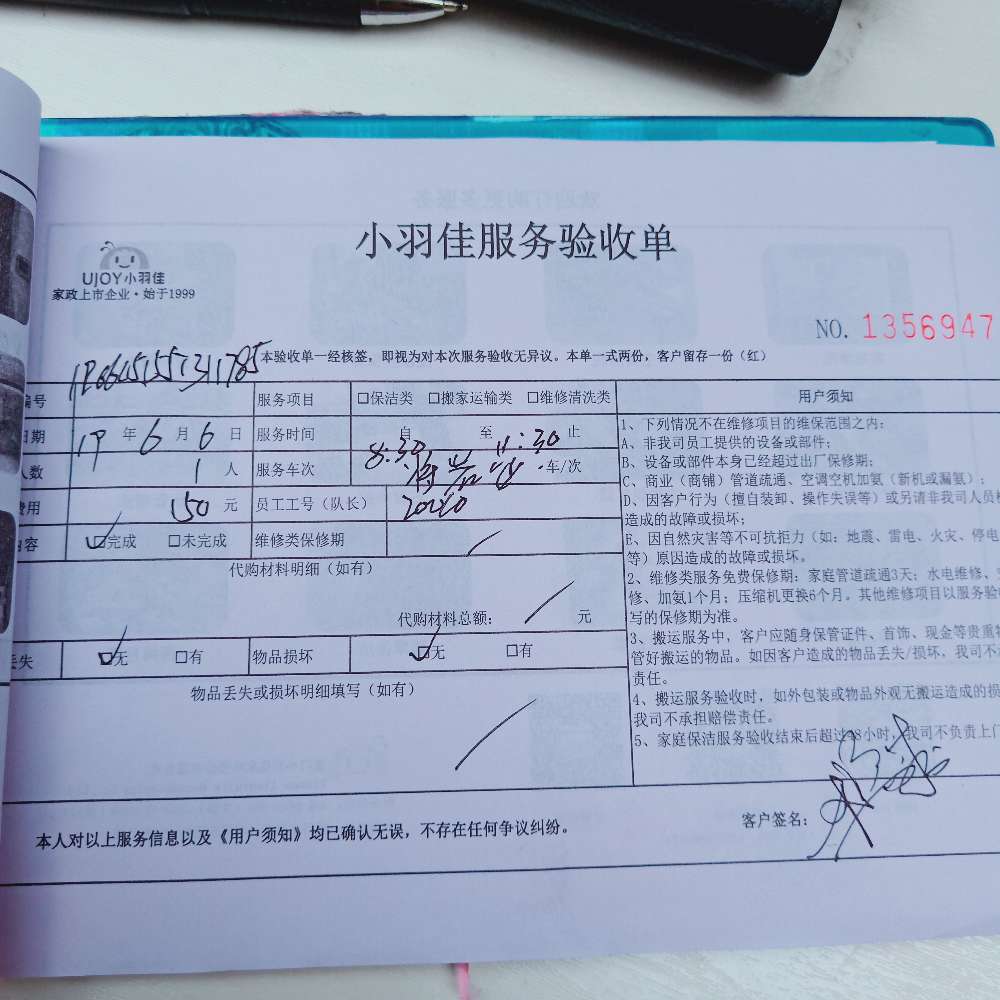 小羽佳服务验收单
UJOY小羽佳
家政上市企业·始于1999
NO. 1356947
本验收单一经核签，即视为对本次服务验收无异议。本单一式两份，客户留存一份（红）
编号 服务项目 □保洁类 □搬家运输类 □维修清洗类 用户须知
日期 19年6月6日 服务时间 自8:30至11:30止
人数 1人 服务车次 车/次
费用 150元 员工工号（队长）
内容 □完成 □未完成 维修类保修期
代购材料明细（如有）
代购材料总额： 元
丢失 □无 □有 物品损坏 □无 □有
物品丢失或损坏明细填写（如有）
1、下列情况不在维修项目的维保范围之内：
A、非我司员工提供的设备或部件；
B、设备或部件本身已经超过出厂保修期；
C、商业（商铺）管道疏通、空调空机加氨（新机或漏氨）；
D、因客户行为（擅自装卸、操作失误等）或另请非我司人员
造成的故障或损坏；
E、因自然灾害等不可抗拒力（如：地震、雷电、火灾、停电
等）原因造成的故障或损坏。
2、维修类服务免费保修期：家庭管道疏通3天；水电维修、
修、加氨1个月；压缩机更换6个月。其他维修项目以服务验
写的保修期为准。
3、搬运服务中，客户应随身保管证件、首饰、现金等贵重
管好搬运的物品。如因客户造成的物品丢失/损坏，我司不
责任。
4、搬运服务验收时，如外包装或物品外观无搬运造成的损
我司不承担赔偿责任。
5、家庭保洁服务验收结束后超过48小时，我司不负责上门
本人对以上服务信息以及《用户须知》均已确认无误，不存在任何争议纠纷。
客户签名：